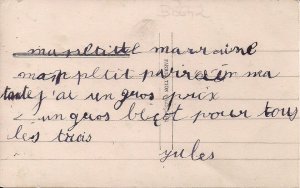 ma petite marraine
mon petit parrain ma
tante j'ai un gros prix
un gros becot pour tous
les trois
yules